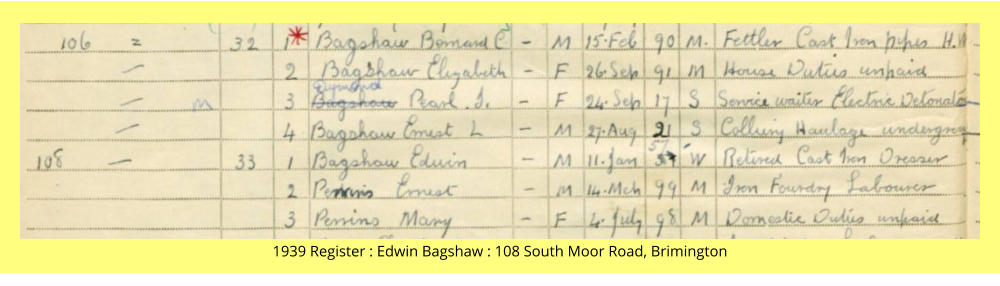 106 = 32 1* Bagshaw Bernard C - M 15.Feb 90 M. Fettler Cast Iron pipes H.W
— 2 Bagshaw Elizabeth - F 26.Sep 91 M House Duties unpaid
— M 3 Bagshaw Pearl. I. - F 24.Sep 17 S
— 4 Bagshaw Ernest L - M 27.Aug 21 S Colliery Haulage undergro
108 — 33 1 Bagshaw Edwin - M 11.Jan 57 W Retired Cast Iron Dresser
2 Perrins Ernest - M 14.Mch 99 M Iron Foundry Labourer
3 Perrins Mary - F 4.July 98 M Domestic Duties unpaid
1939 Register : Edwin Bagshaw : 108 South Moor Road, Brimington